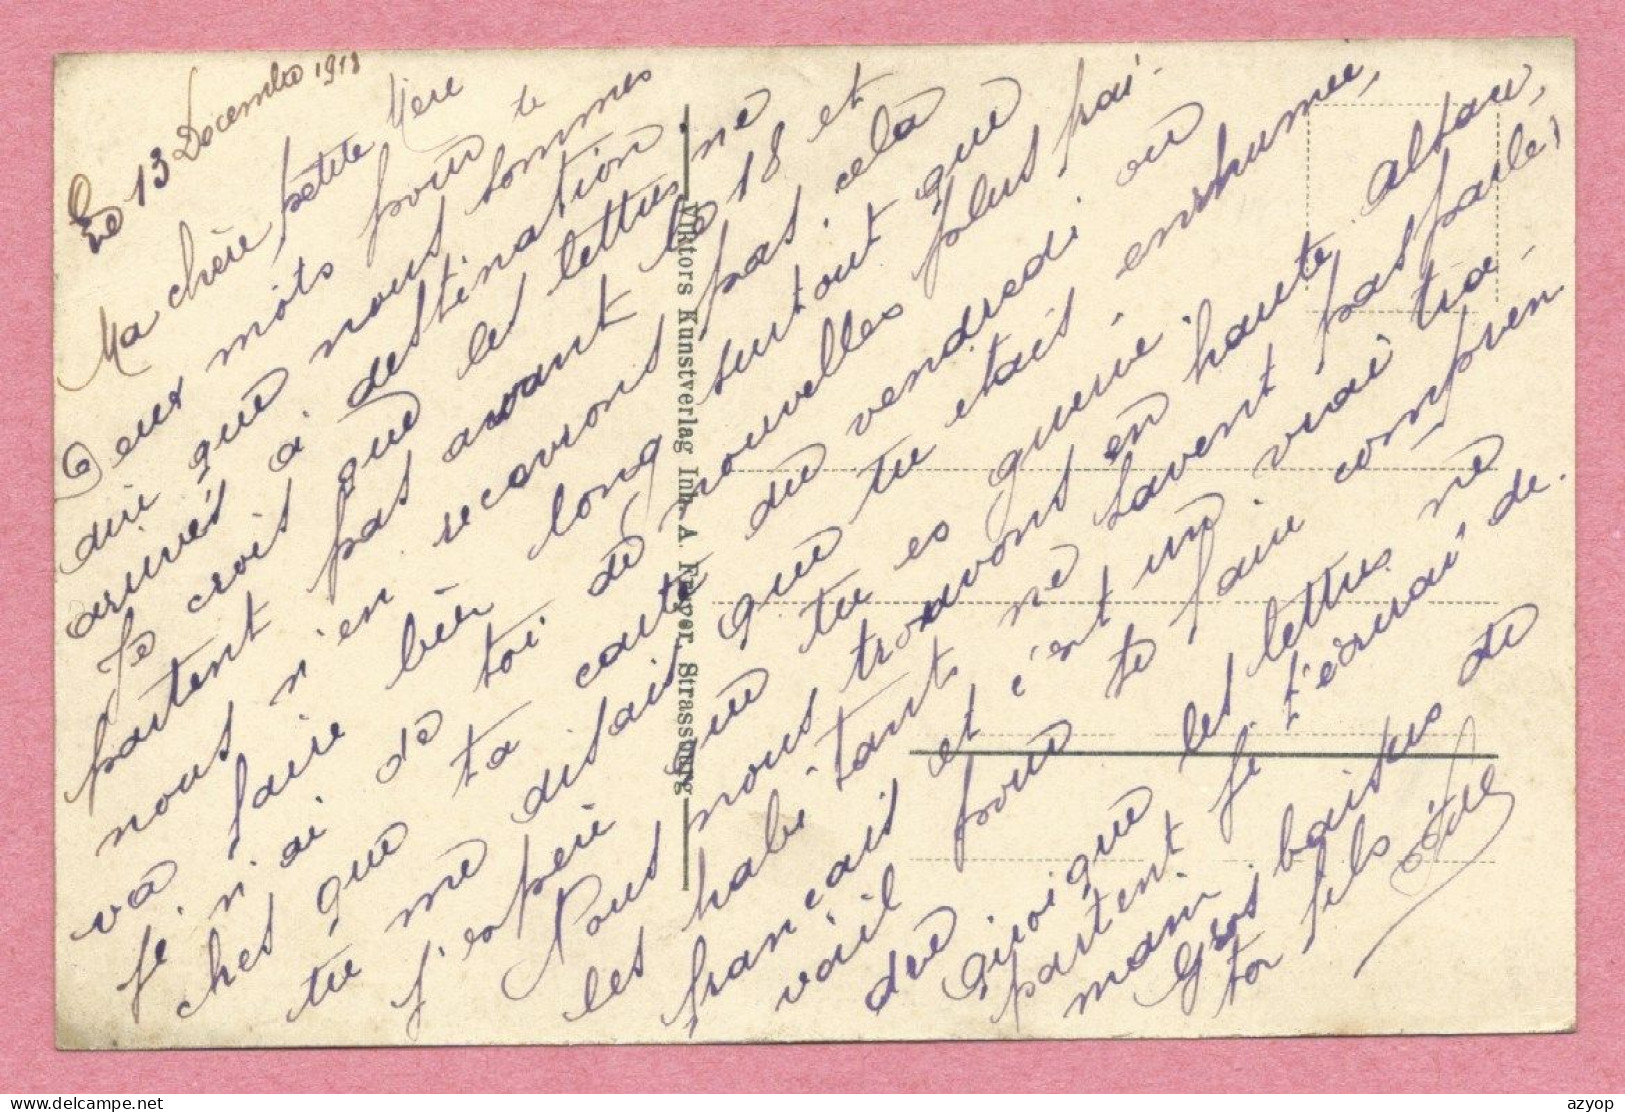 Le 13 Decembre 1918
Ma chère petite Mère
Deux mots pour te
dire que nous sommes
arrivés à destination.
Je crois que les lettres ne
partent pas avant le 18 et
nous n'en recevrons pas. cela
va faire bien long surtout que
je n'ai de toi de nouvelles plus frai-
ches que ta carte du vendredi où
tu me disais que tu etais enrhumée,
j'espère que tu es guerie.
Nous nous trouvons en haute Alsace,
les habitants ne savent pas parler
français et c'est un vrai tra-
vail pour se faire compren
dre
Quoique les lettres ne
partent je t'écrirai de-
main.
Gros baisers de
ton fils
Viktors Kunstverlag Inh. A. Strassburg
azyop